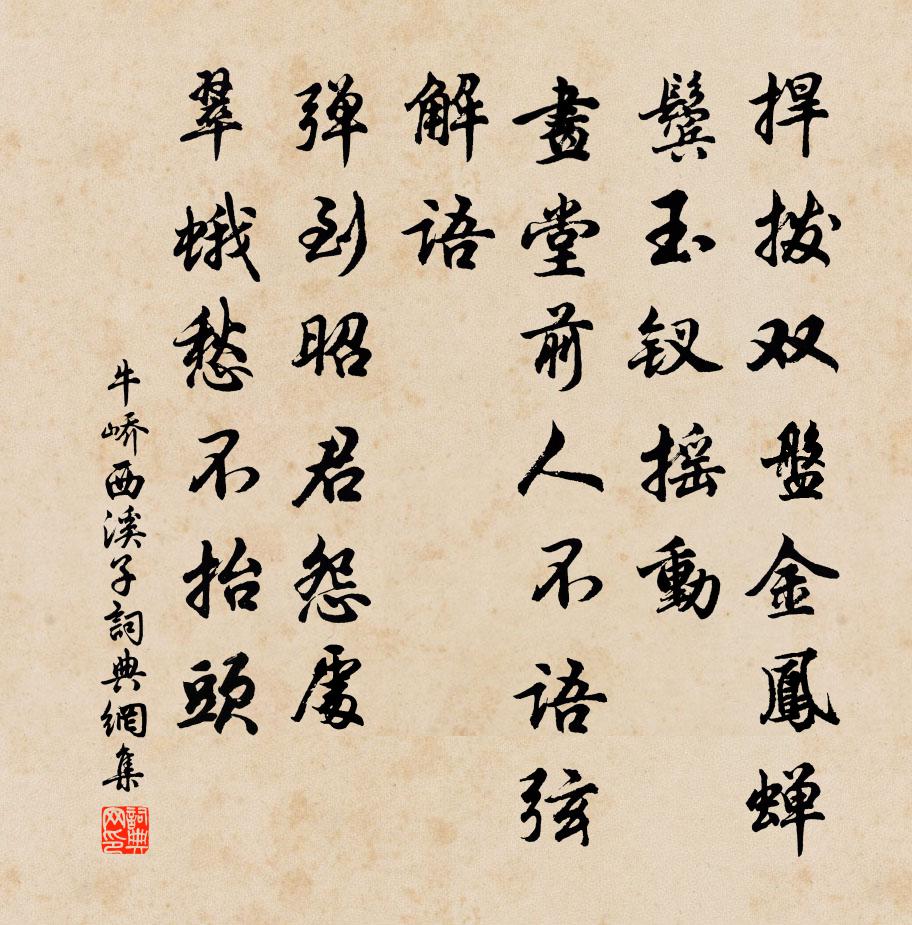 捍拨双盤金鳳蝉
鬓玉钗摇動
畫堂前人不语弦
解语
弹到昭君怨處
翠蛾愁不抬頭
牛峤西溪子詞典網集
詞典网印